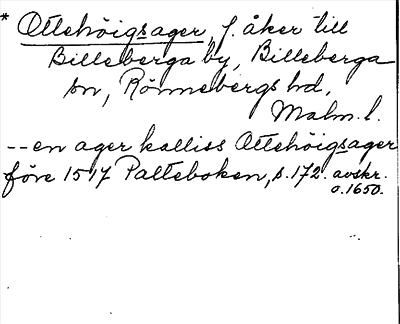 * Ottehöigsager, f. åker till
Billeberga by, Billeberga
sn, Rönnebergs hd,
Malm. l.
--en ager kalliss Ottehöigsager
före 1517 Palteboken, s. 172. avskr.
o. 1650.